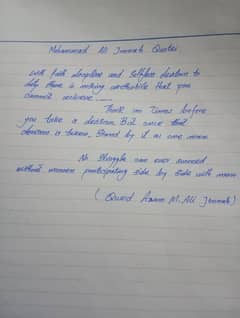 Mohammad Ali Jinnah Quotes
with faith, discipline and selfless devotion to
duty there is nothing worthwhile that you
cannot achieve......
Think 100 times before
you take a decision, But once that
decision is taken, Stand by it as one man.
No struggle can ever succeed
without women participating side by side with men
(Quaid Azam M. Ali Jinnah)